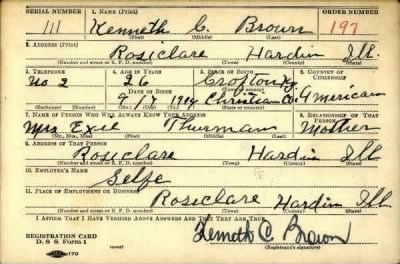 SERIAL NUMBER 1. NAME (Print) ORDER NUMBER
111 Kenneth C. Brown 197
(First) (Middle) (Last)
2. ADDRESS (Print)
Rosiclare Hardin Ill.
(Number and street or R. F. D. number) (Town) (County) (State)
3. TELEPHONE 4. AGE IN YEARS 5. PLACE OF BIRTH 6. COUNTRY OF CITIZENSHIP
No 2 26 Crofton Ky.
DATE OF BIRTH (Town or county)
9 1914 Christian Co. American
(Exchange) (Number) (Mo.) (Day) (Yr.) (State or country)
7. NAME OF PERSON WHO WILL ALWAYS KNOW YOUR ADDRESS 8. RELATIONSHIP OF THAT PERSON
Mrs Exie Thurman Mother
(Mr., Mrs., Miss) (First) (Middle) (Last)
9. ADDRESS OF THAT PERSON
Rosiclare Hardin Ill
(Number and street or R. F. D. number) (Town) (County) (State)
10. EMPLOYER'S NAME
Selfe
11. PLACE OF EMPLOYMENT OR BUSINESS
Rosiclare Hardin Ill
(Number and street or R. F. D. number) (Town) (County) (State)
I AFFIRM THAT I HAVE VERIFIED ABOVE ANSWERS AND THAT THEY ARE TRUE.
REGISTRATION CARD Kenneth C Brown
D. S. S. Form 1 (Registrant's signature)